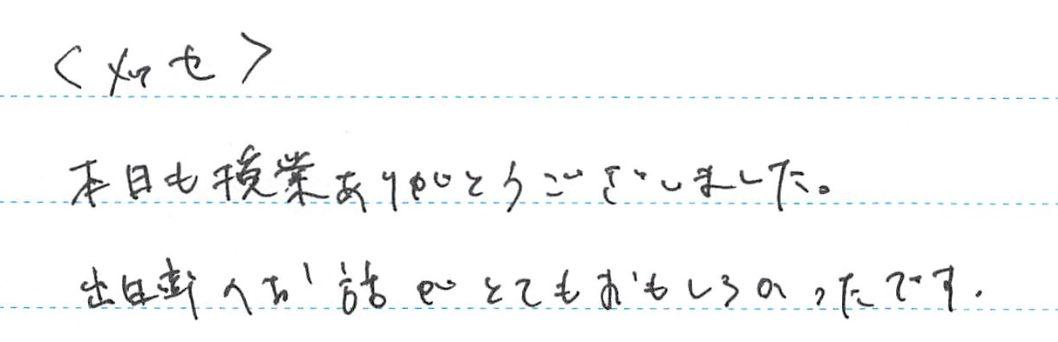 <メッセ>
本日も授業ありがとうございました。
お話がとてもおもしろかったです.